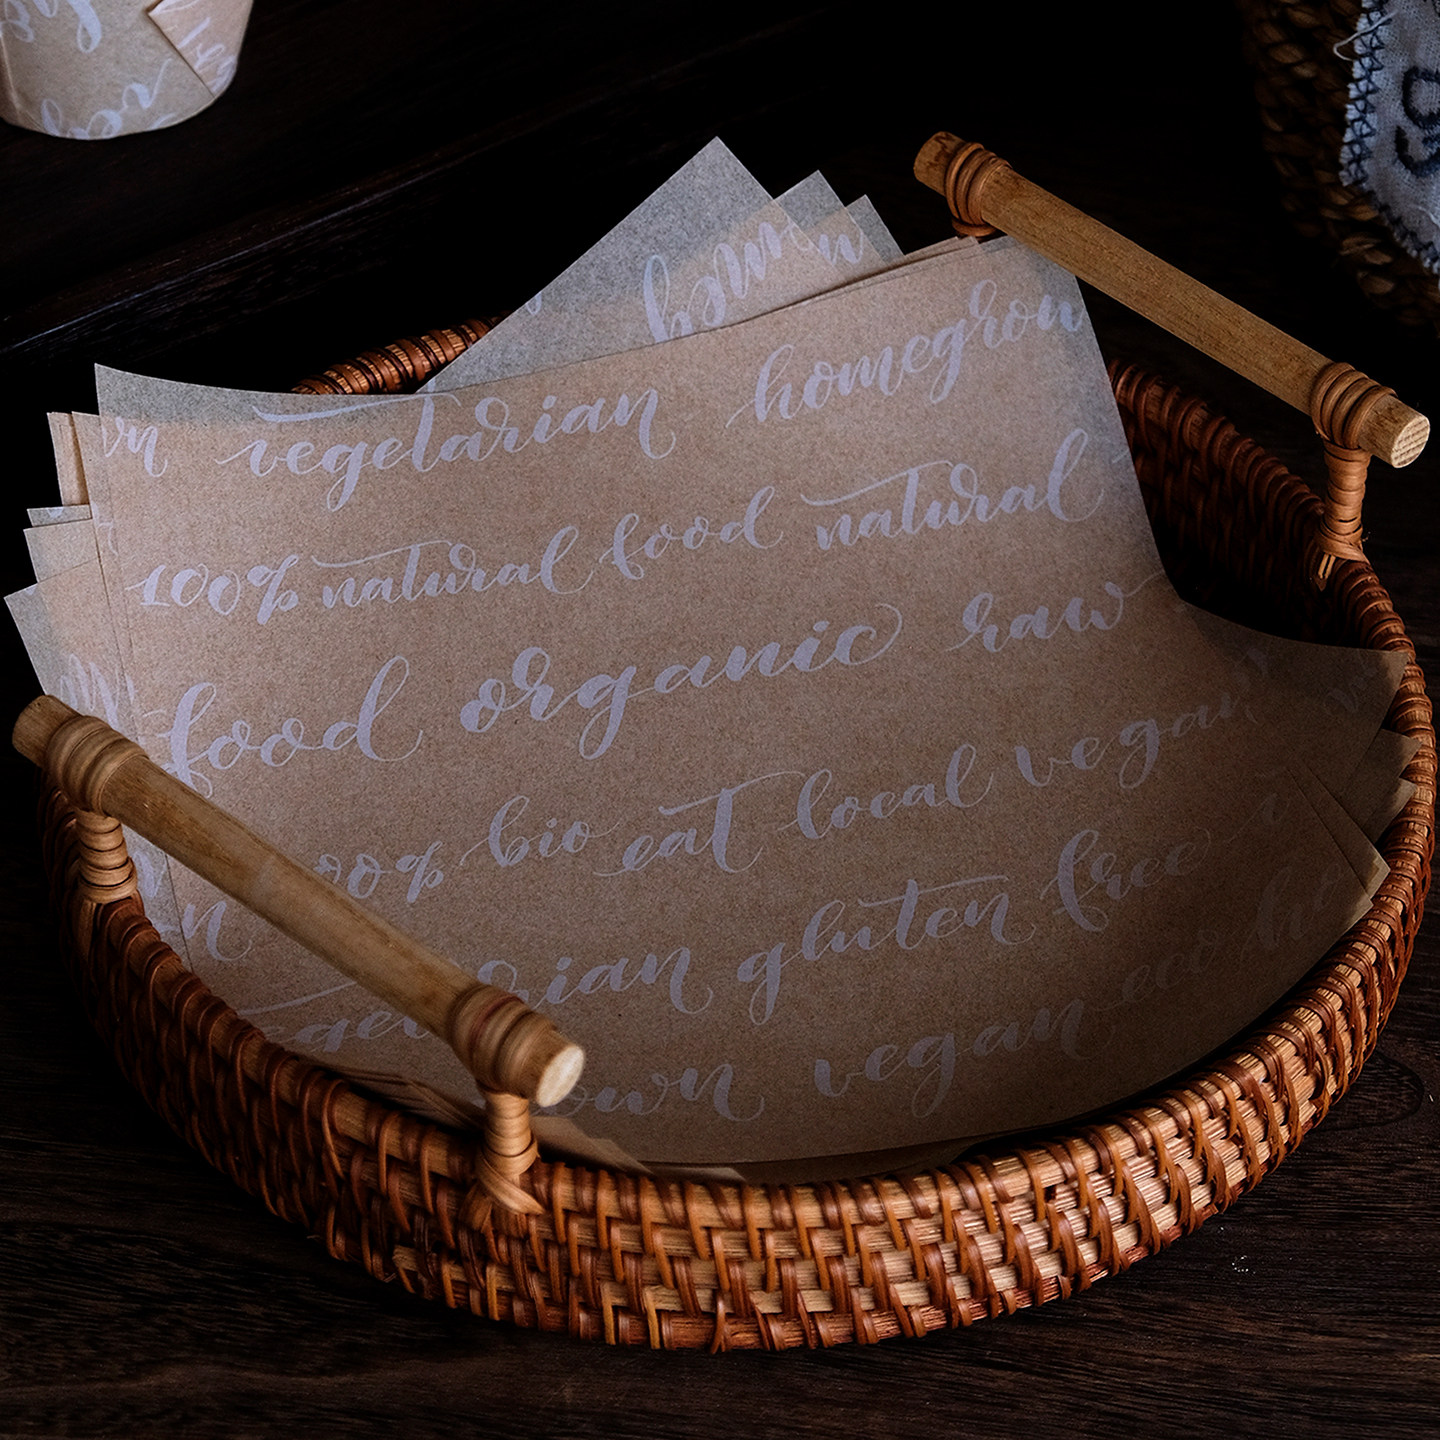 vegetarian homegrown
100% natural food natural
food organic raw
bio eat local vegan
gluten free
vegan eco